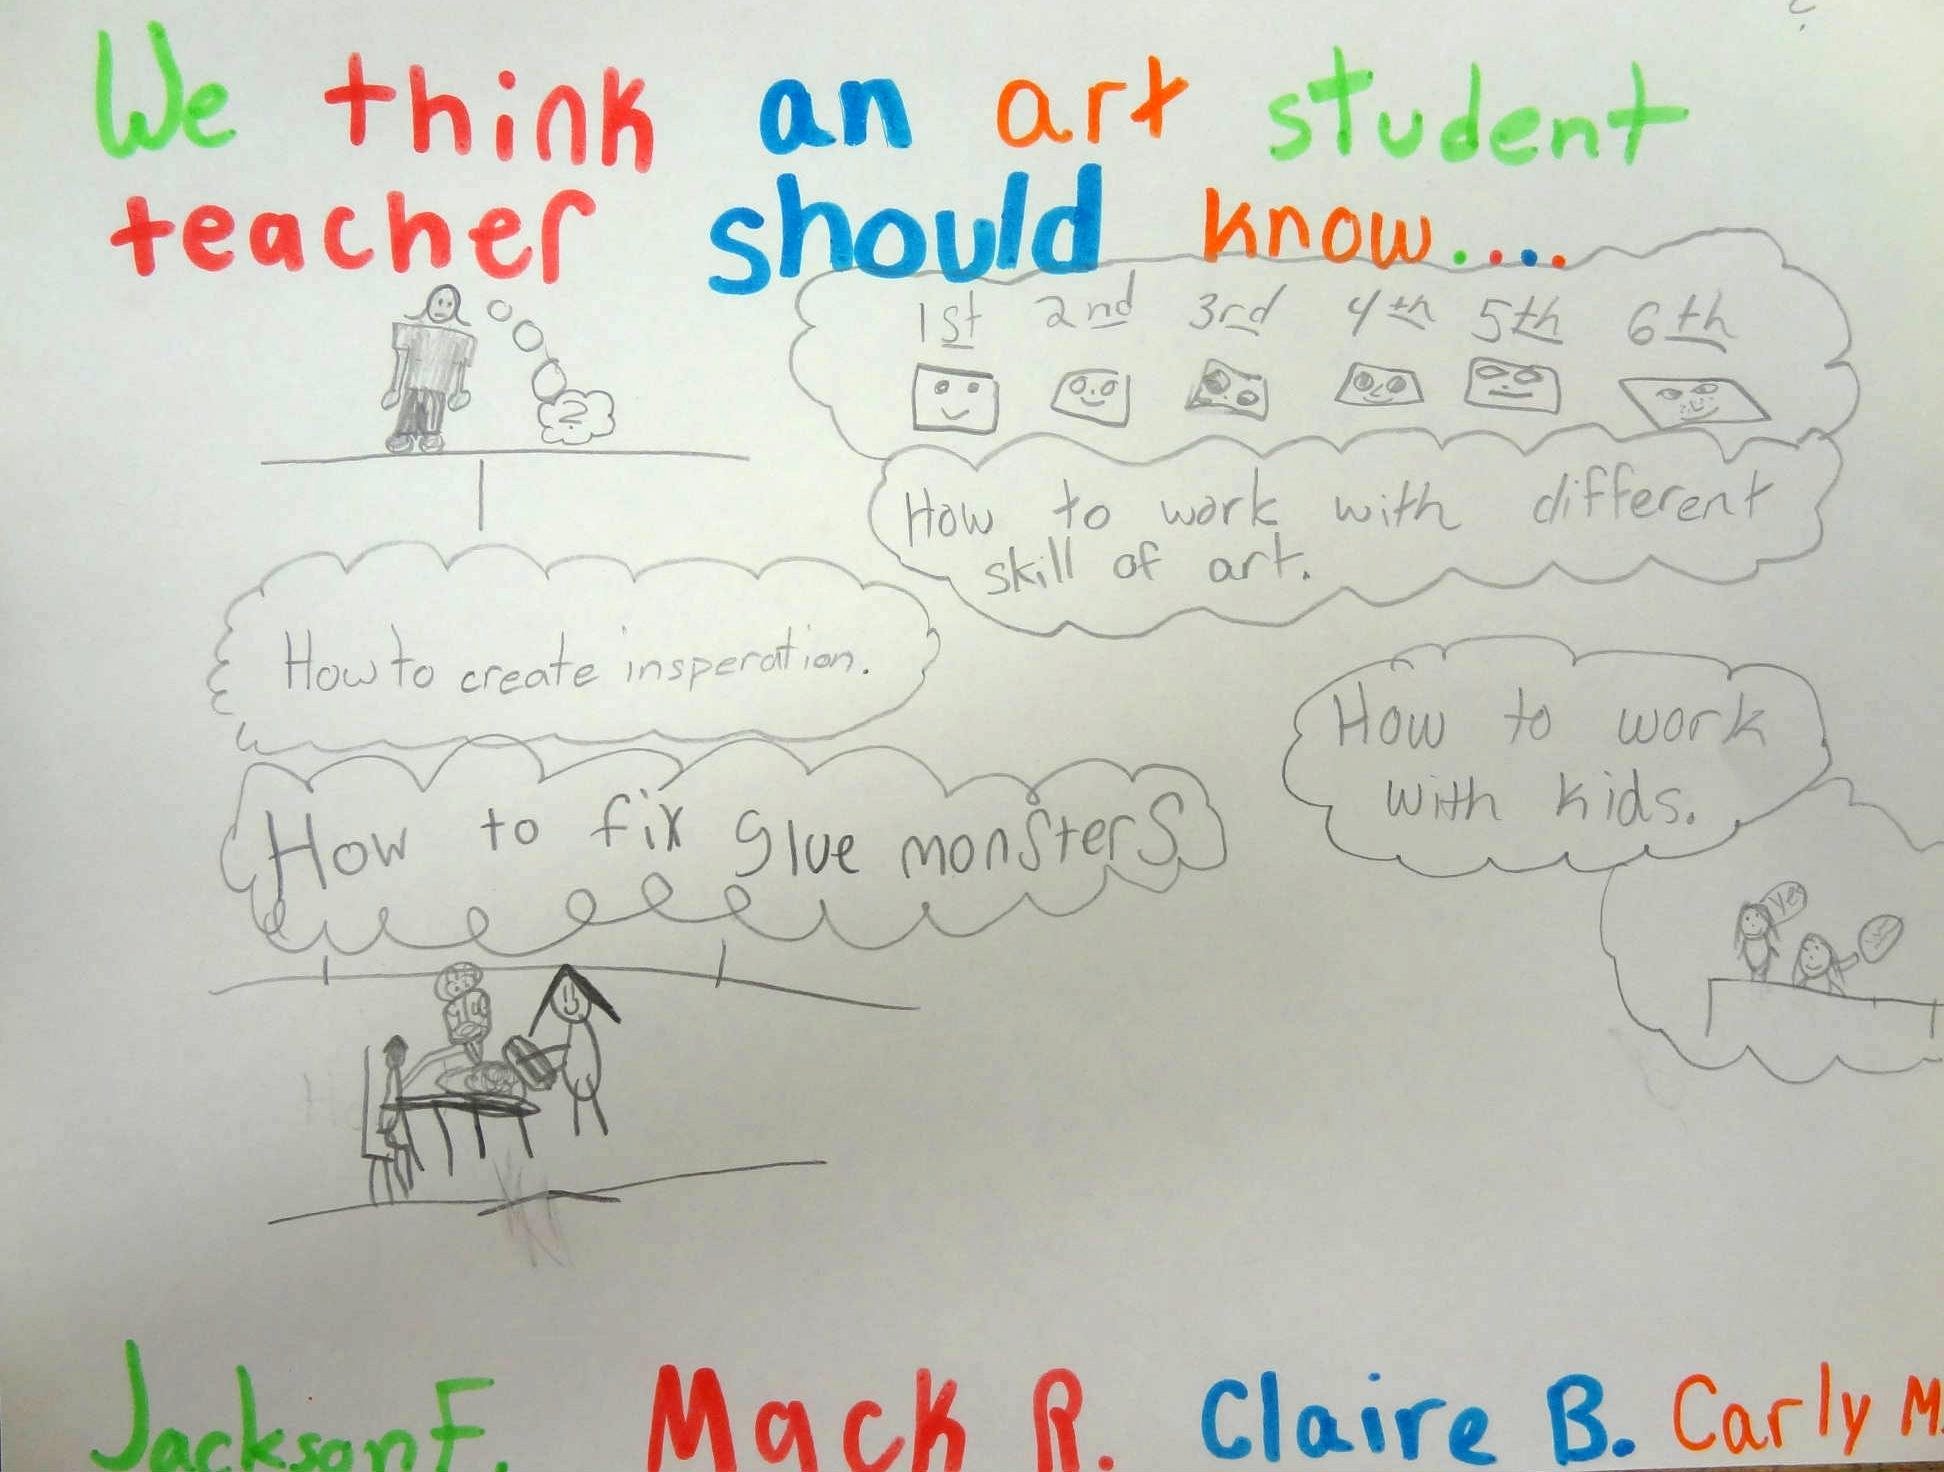 We think an art student
teacher should know....
1st 2nd 3rd 4th 5th 6th
?
How to work with different
skill of art.
How to create insperation.
How to work
with kids.
How to fix glue monsters
Yes
Jackson F. Mack R. Claire B. Carly M.